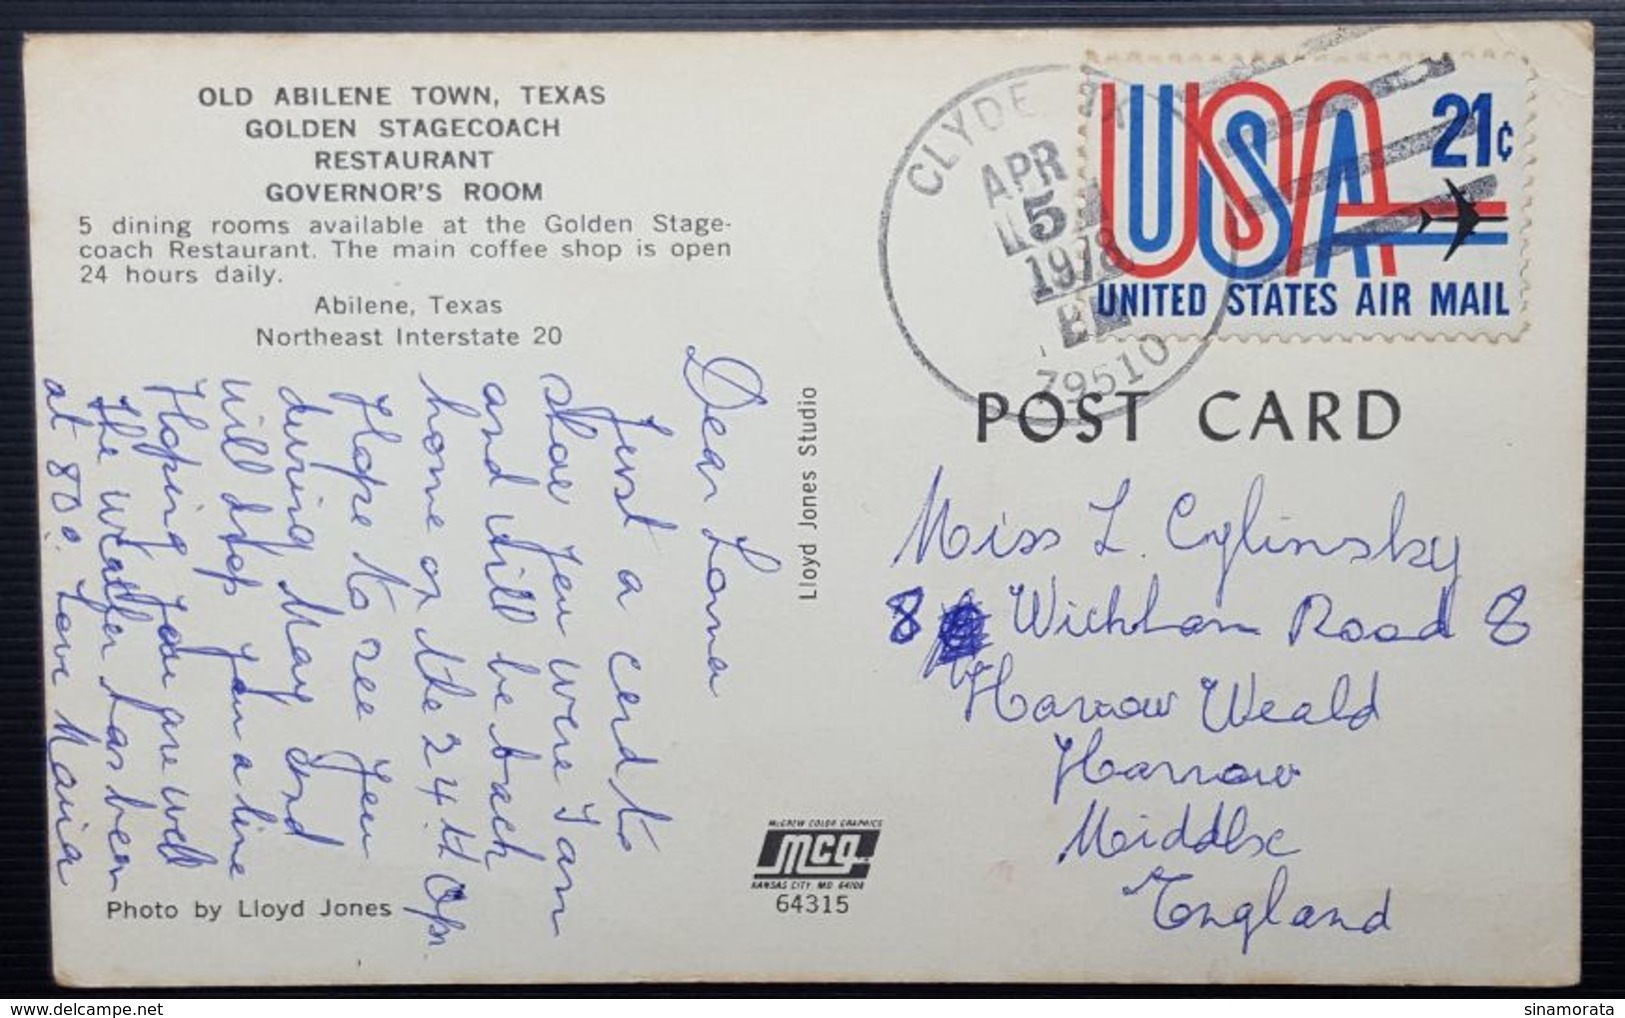 OLD ABILENE TOWN, TEXAS
GOLDEN STAGECOACH
RESTAURANT
GOVERNOR'S ROOM
5 dining rooms available at the Golden Stage-
coach Restaurant. The main coffee shop is open
24 hours daily.
Abilene, Texas
Northeast Interstate 20
Dear Lorna
Just a card to
show you were I am
and will be back
home on the 24th Apr.
Hope to see you
during May and
will drop you a line
Hoping you are well
The weather has been
at 80° Love Maria
Photo by Lloyd Jones
Lloyd Jones Studio
McGREW COLOR GRAPHICS
MCG
KANSAS CITY, MO. 64108
64315
CLYDE
APR
5
1978
79510
USA
21c
UNITED STATES AIR MAIL
POST CARD
Miss L. Cylinsky
8 Wickham Road 8
Harrow Weald
Harrow
Middlx
England
delcampe.net
sinamorata